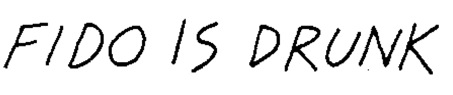 FIDO IS DRUNK